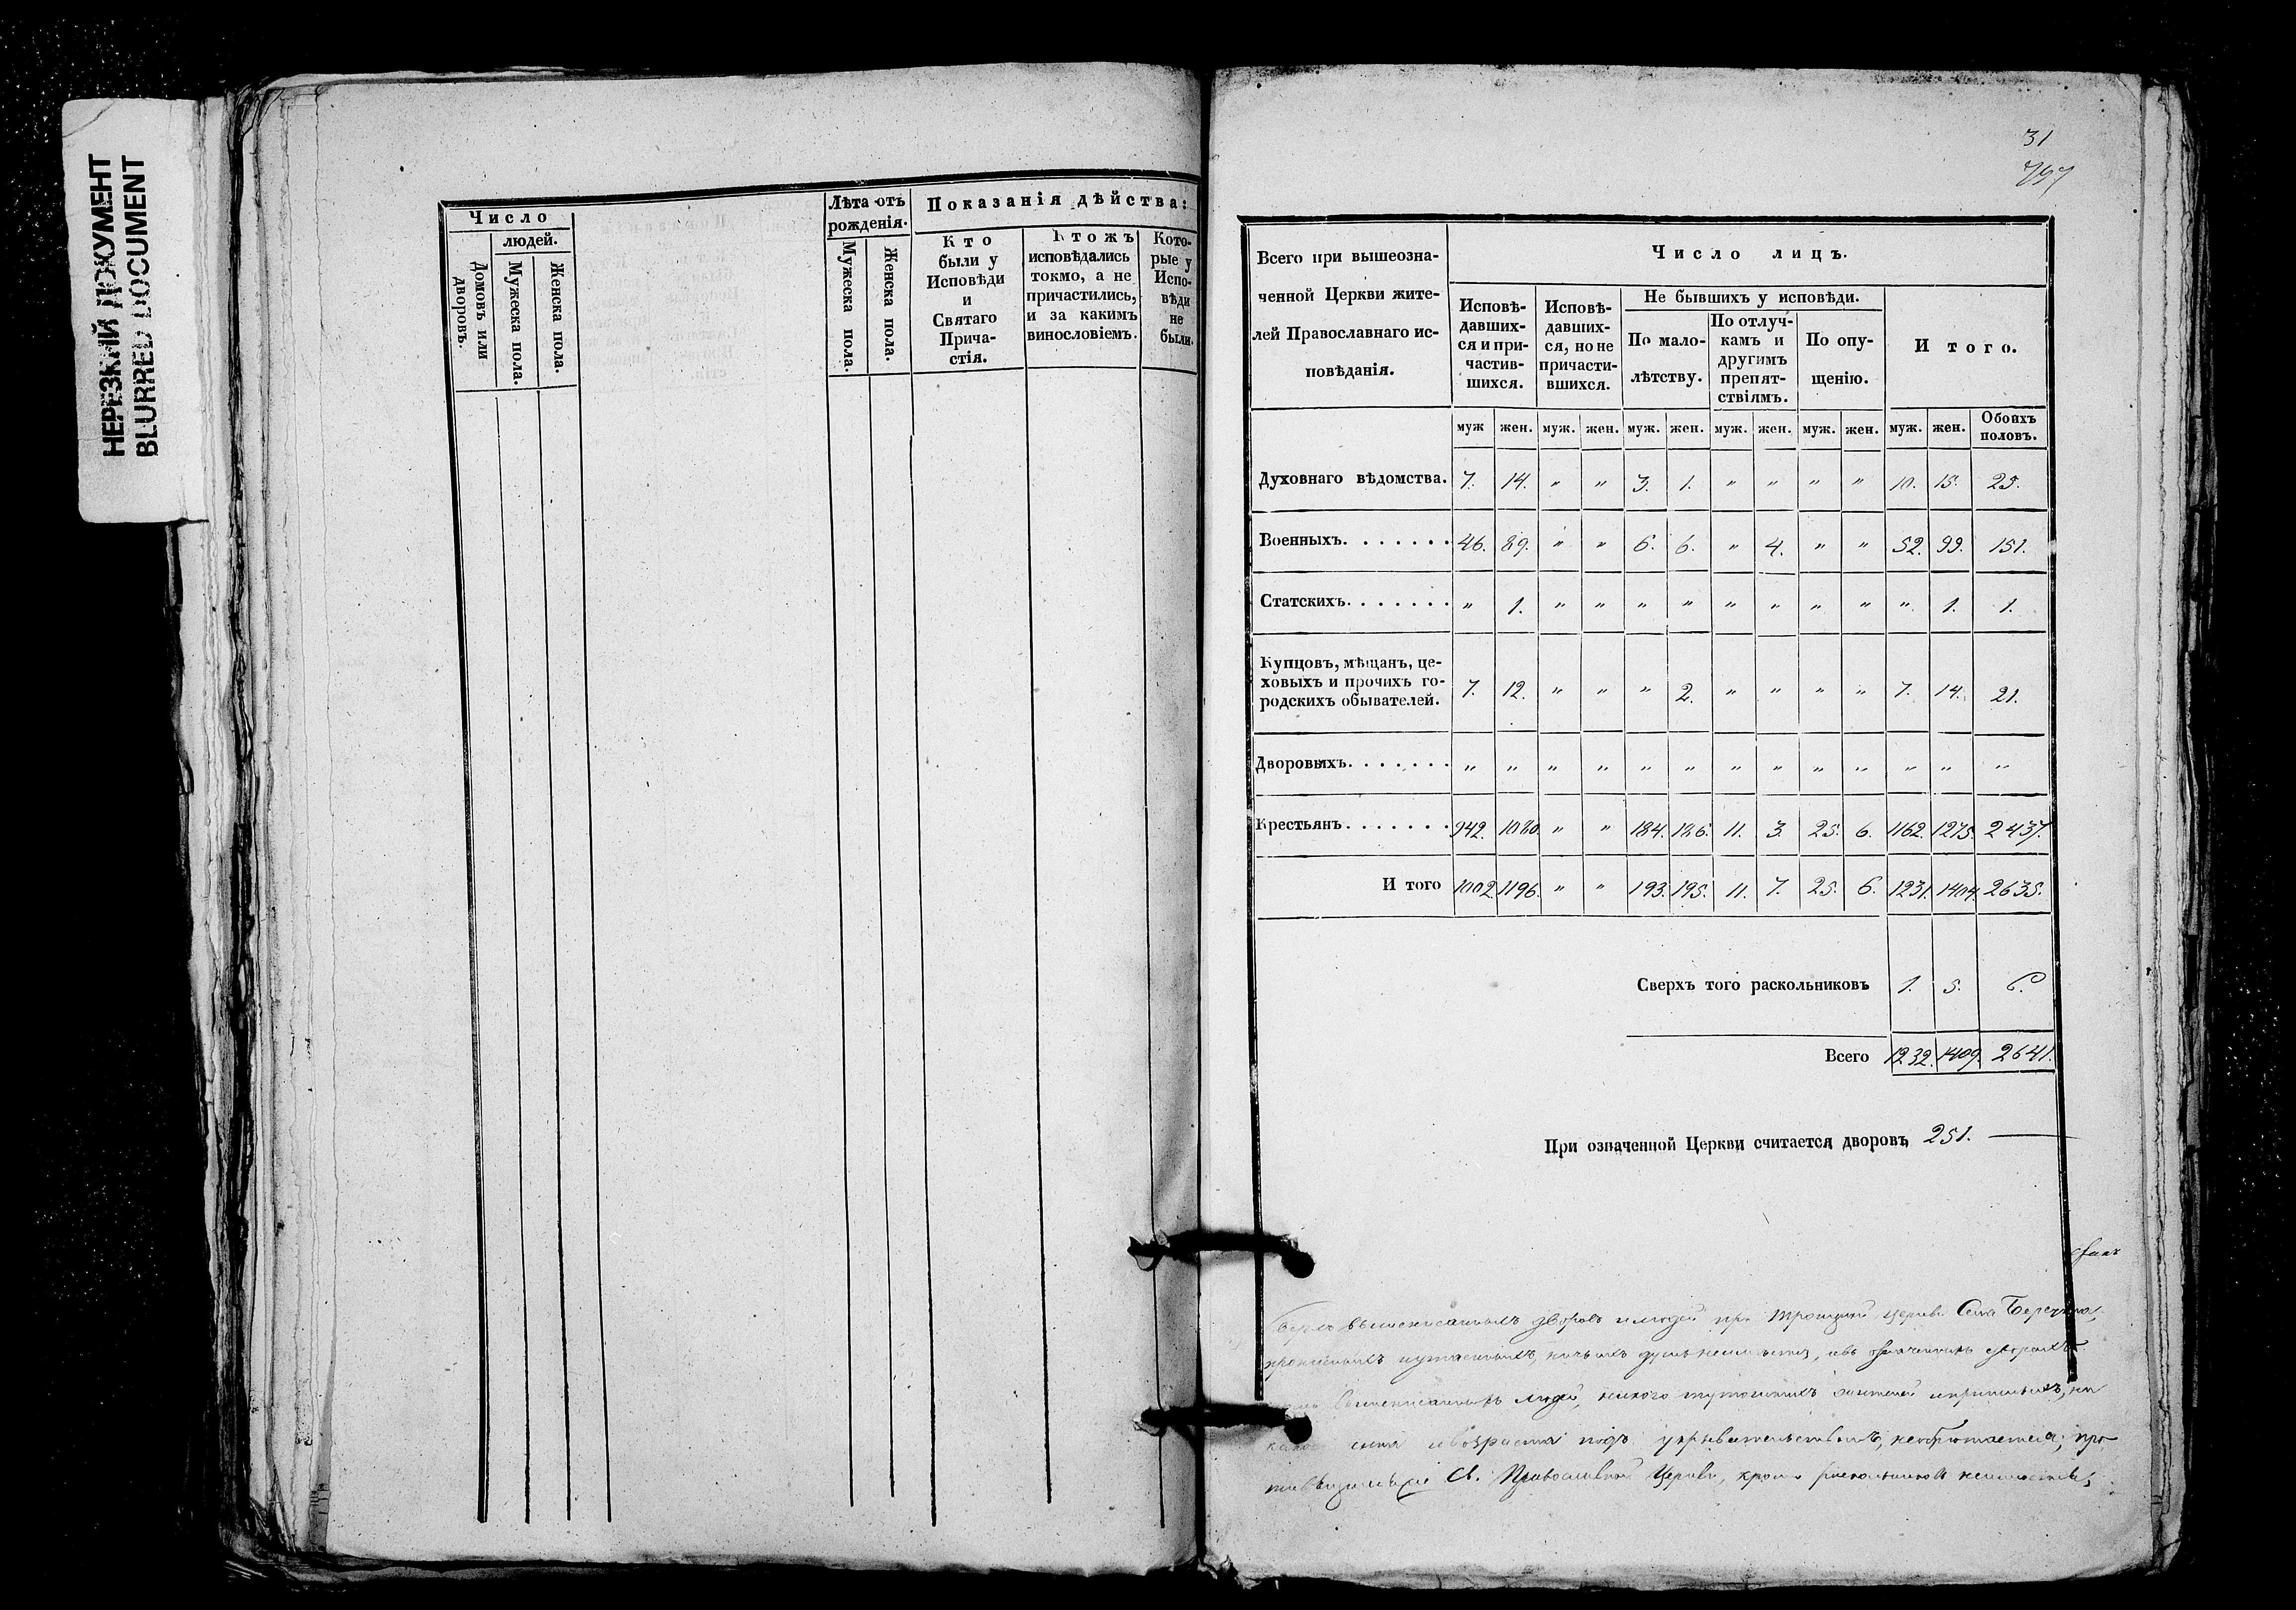 НЕРЕЗКИЙ ДОКУМЕНТ
BLURRED DOCUMENT
Число
людей.
Домовъ или дворовъ.
Мужеска пола.
Женска пола.
Лѣта отъ
рожденія.
Мужеска пола.
Женска пола.
Показанія дѣйства:
Кто
были у
Исповѣди
и
Святаго
Прича-
стія.
Ктожъ
исповѣдались
токмо, а не
причастились,
и за какимъ
винословіемъ.
Кото-
рые у
Испо-
вѣди
не
были.
31
797
Всего при вышеозна-
ченной Церкви жите-
лей Православнаго ис-
повѣданія.
Число лицъ.
Исповѣ-
давших-
ся и при-
частив-
шихся.
Исповѣ-
давших-
ся, но не
причасти-
вшихся.
Не бывшихъ у исповѣди.
По мало-
лѣтству.
По отлуч-
камъ и
другимъ
препят-
ствіямъ.
По опу-
щенію.
Итого.
муж жен. муж. жен. муж. жен. муж. жен. муж. жен. муж. жен. Обоихъ половъ.
Духовнаго вѣдомства. 7. 14. " " 3. 1. " " " " 10. 15. 25.
Военныхъ. . . . . . . 46. 89. " " 6. 6. " 4. " " 52. 99. 151.
Статскихъ. . . . . . . " 1. " " " " " " " " " 1. 1.
Купцовъ, мѣщанъ, це-
ховыхъ и прочихъ го-
родскихъ обывателей. 7. 12. " " " 2. " " " " 7. 14. 21.
Дворовыхъ. . . . . . . " " " " " " " " " " " " "
Крестьянъ. . . . . . . 942. 1080. " " 184. 186. 11. 3. 25. 6. 1162. 1275. 2437.
И того 1002. 1196. " " 193. 195. 11. 7. 25. 6. 1231. 1404. 2635.
Сверхъ того раскольниковъ 1. 5. 6.
Всего 1232. 1409. 2641.
При означенной Церкви считается дворовъ 251.
вышеписанныхъ дворовъ и людей при Троицкой Церкви Села
вышеписанныхъ людей, никого
и возраста подъ укрывательствомъ,
Св. Православной Церкви, кромѣ раскольниковъ